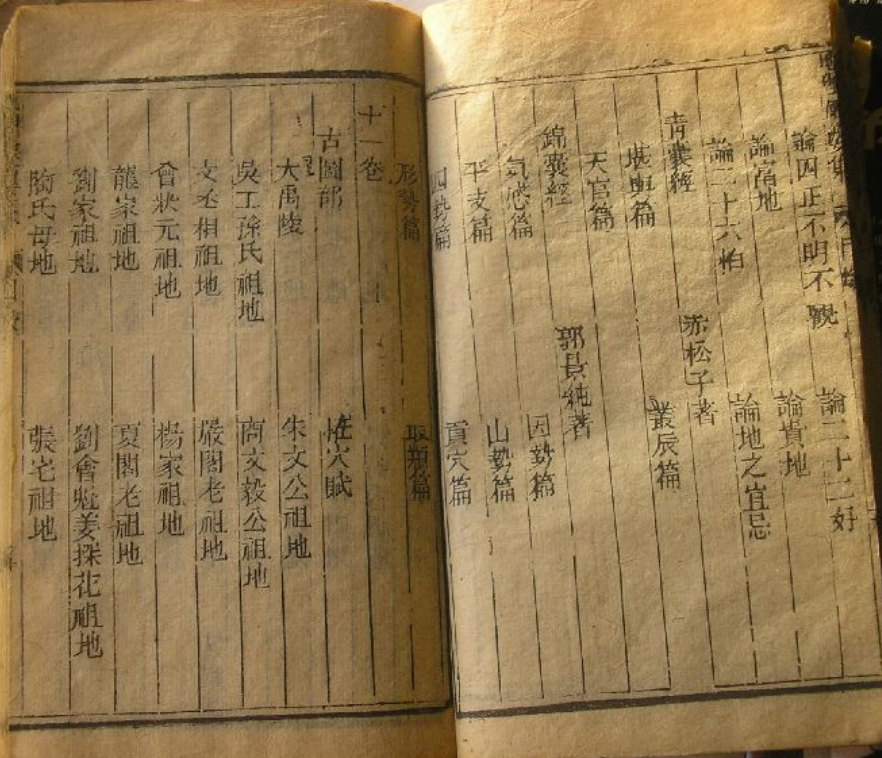 論四正不明不覩　論二十二好
論富地　論貴地
論二十六怕　論地之宜忌
青囊經　赤松子著
堪輿篇　叢辰篇
天官篇
錦囊經　郭景純著
氣感篇　因勢篇
平支篇　山勢篇
四勢篇　貴穴篇
形勢篇　取類篇
十一卷
古圖部　怪穴賦
大禹陵　朱文公祖地
吳工孫氏祖地　商文毅公祖地
文丞相祖地　嚴閣老祖地
會狀元祖地　楊家祖地
龍家祖地　夏閣老祖地
劉家祖地　劉會魁姜探花祖地
陶氏母地　張宅祖地